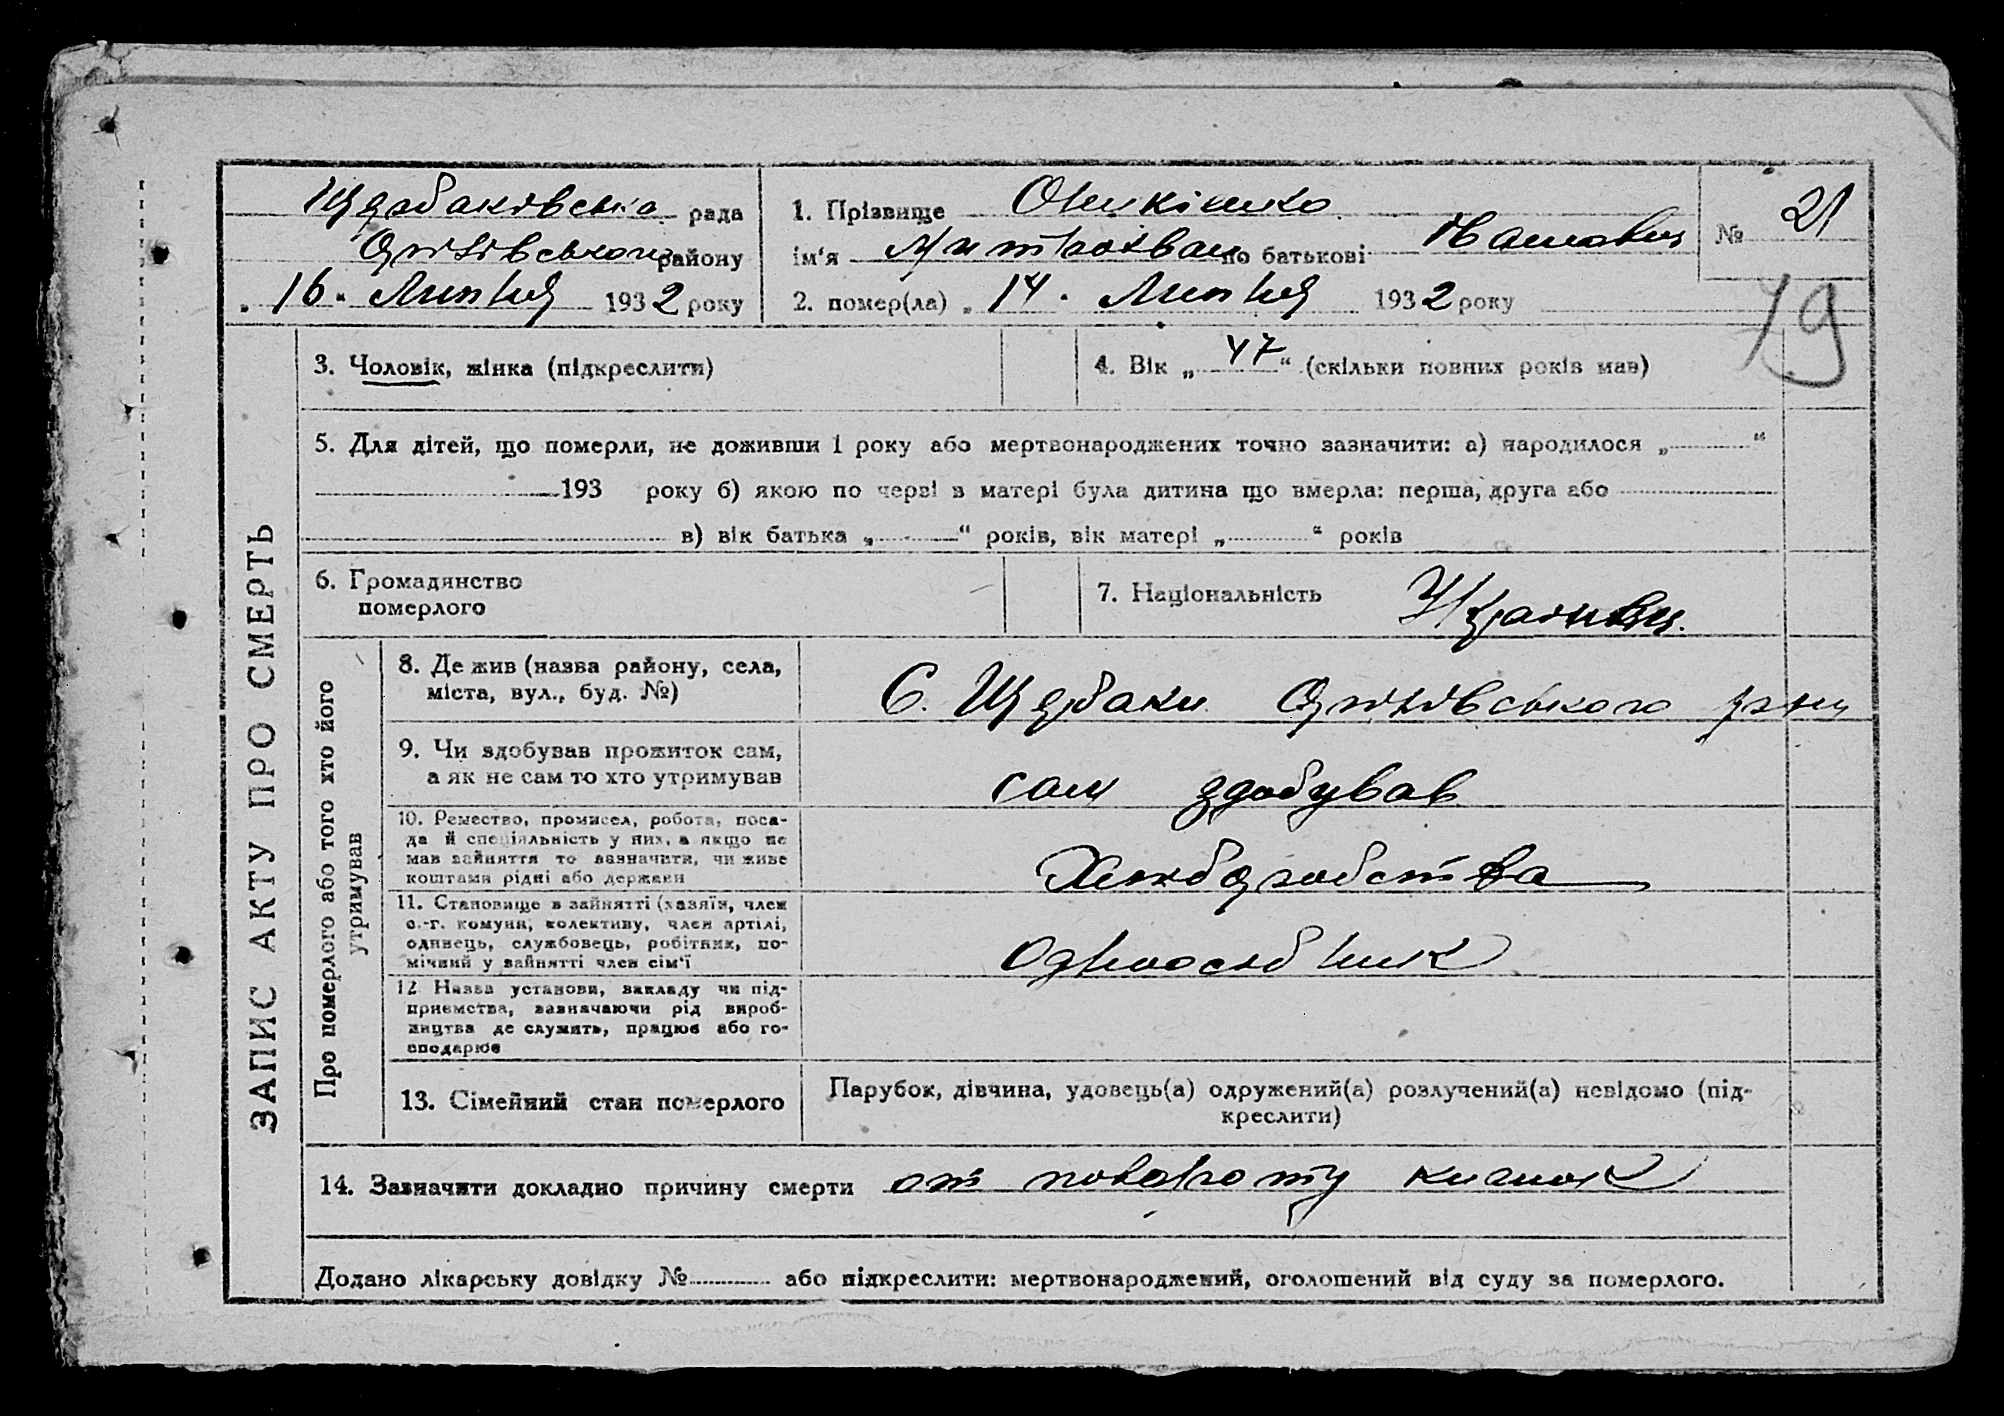 Щербаківська рада
Оріхівського району
„16“ Липня 1932 року
1. Прізвище Оникієнко
ім‘я Митрохван по батькові
2. помер(ла) „14“ Липня 1932 року
№ 21
19
ЗАПИС АКТУ ПРО СМЕРТЬ
3. Чоловік, жінка (підкреслити)
4. Вік „47“ (скільки повних років мав)
5. Для дітей, що померли, не доживши 1 року або мертвонароджених точно зазначити: а) народилося „ “
193 року б) якою по черзі в матері була дитина що вмерла: перша, друга або
в) вік батька „ “ років, вік матері „ “ років
6. Громадянство
померлого
7. Національність Українець
Про померлого або того хто його
утримував
8. Де жив (назва району, села,
міста, вул., буд. №)
С. Щербаки Оріхівського
9. Чи здобував прожиток сам,
а як не сам то хто утримував
сам здобував
10. Ремество, промисел, робота, поса-
да й спеціяльність у них, а якщо не
мав зайняття то зазначити, чи живе
коштами рідні або держави
Хліборобства
11. Становище в зайнятті (хазяїн, член
с.-г. комуни, колективу, член артілі,
одинець, службовець, робітник, по-
мічний у зайнятті член сім‘ї
Одноосібник
12 Назва установи, закладу чи під-
приємства, зазначаючи рід вироб-
ництва де служить, працює або го-
сподарює
13. Сімейний стан померлого
Парубок, дівчина, удовець(а) одружений(а) розлучений(а) невідомо (під-
креслити)
14. Зазначити докладно причину смерти от повороту кишок
Додано лікарську довідку № або підкреслити: мертвонароджений, оголошений від суду за померлого.